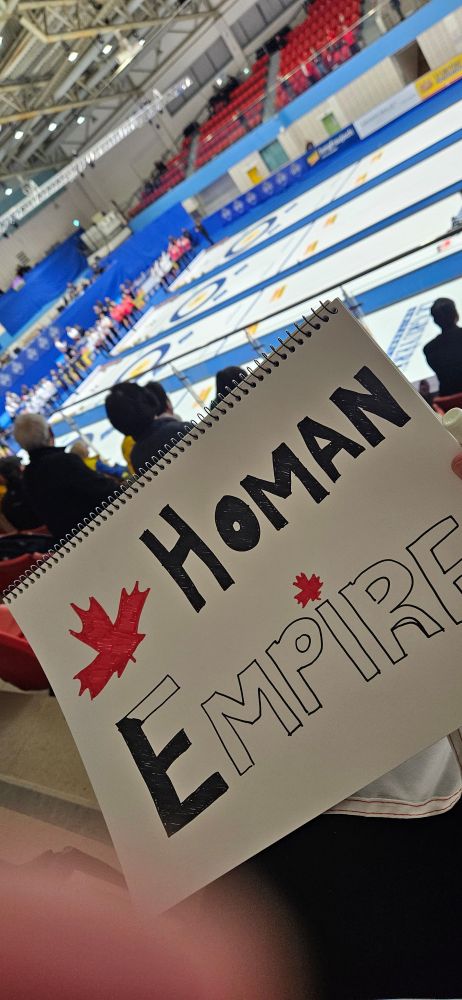 HOMAN
EMPIRE